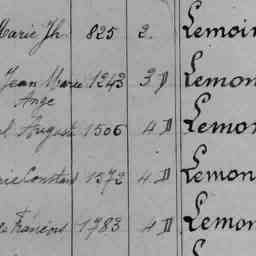 Marie Jh. 825 2. Lemoin
Jean Marie 1243 3 D Lemon
Ange
August 1506 4 D Lemon
rie Constant 1572 4 D Lemon
François 1783 4 D Lemon